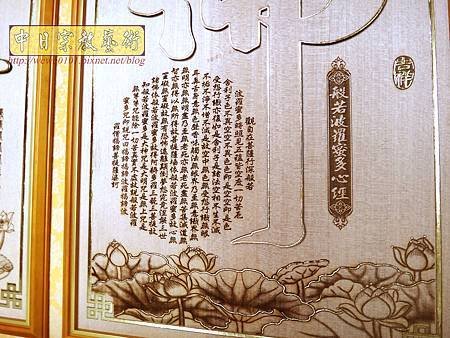 中日宗教藝術
http://wewe10101.pixnet.net/blog
吉祥
般若波羅蜜多心經
觀自在菩薩行深般若
波羅蜜多時照見五蘊皆空度一切苦厄
舍利子色不異空空不異色色即是空空即是色
受想行識亦復如是舍利子是諸法空相不生不滅
不垢不淨不增不減是故空中無色無受想行識無眼
耳鼻舌身意無色聲香味觸法無眼界乃至無意識界無
無明亦無無明盡乃至無老死亦無老死盡無苦集滅道無
智亦無得以無所得故菩提薩埵依般若波羅蜜多故心無
罣礙無罣礙故無有恐怖遠離顛倒夢想究竟涅槃三世
諸佛依般若波羅蜜多故得阿耨多羅三藐三菩提故
知般若波羅蜜多是大神咒是大明咒是無上咒是
無等等咒能除一切苦真實不虛故說般若波羅
蜜多咒即說咒曰揭諦揭諦波羅揭諦
波羅僧揭諦菩提薩婆訶